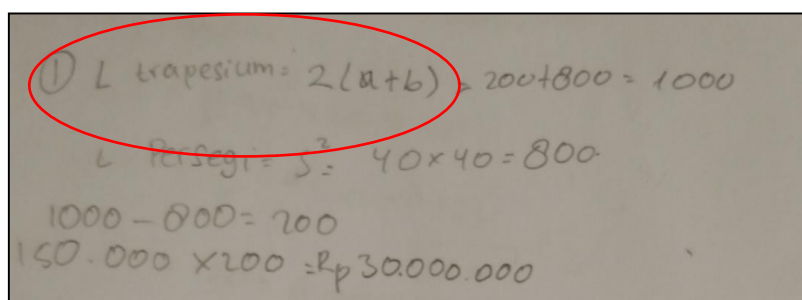 ① L trapesium = 2(a+b) = 200+800 = 1000
L Persegi = s² = 40 × 40 = 800
1000 - 800 = 200
150.000 × 200 = Rp 30.000.000